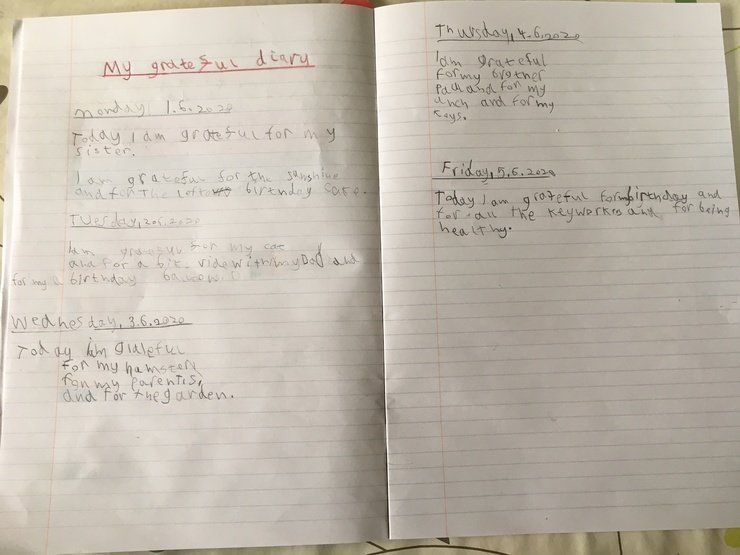 My grateful diary
monday 1.6.2020
Today I am grateful for my
sister.
I am grateful for the sunshine
and for the birthday cake.
Tuesday, 2.6.2020
grateful for my cat
and for a ride with my Dad and
for my birthday
Wednesday, 3.6.2020
Today
for my hamster
for my parents,
and for the garden.
Thursday, 4.6.2020
I am grateful
for my brother
and for my
and for my
Friday, 5.6.2020
Today I am grateful for my birthday and
for all the keyworkers and for being
healthy.